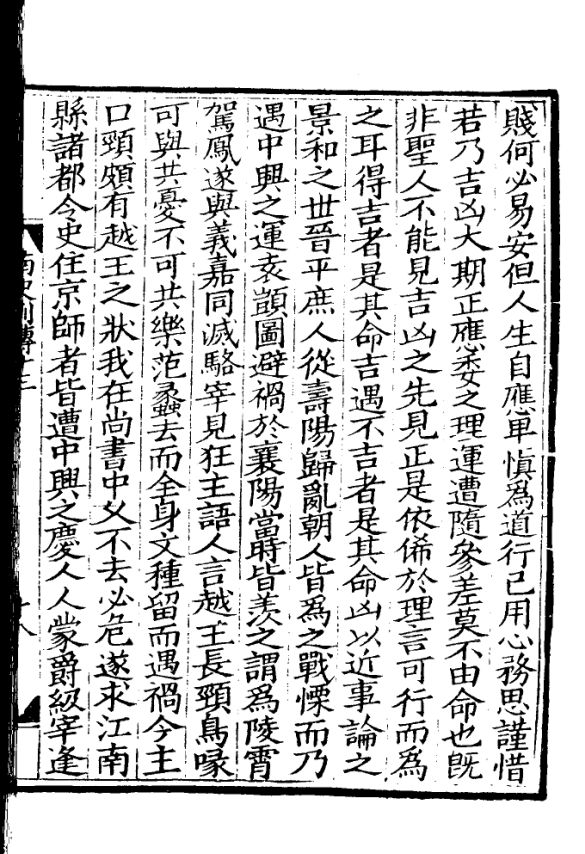 賤何必易安但人生自應卑慎爲道行已用心務思謹惜
若乃吉凶大期正應委之理運遭隨參差莫不由命也旣
非聖人不能見吉凶之先見正是依俙於理言可行而爲
之耳得吉者是其命吉遇不吉者是其命凶以近事論之
景和之世晉平庶人從壽陽歸亂朝人皆爲之戰慄而乃
遇中興之運袁顗圖避禍於襄陽當時皆羨之謂爲陵霄
駕鳳遂與義嘉同滅駱宰見狂主語人言越王長頸鳥喙
可與共憂不可共樂范蠡去而全身文種留而遇禍今主
口頸頗有越王之狀我在尚書中乆不去必危遂求江南
縣諸都令史住京師者皆遭中興之慶人人蒙爵級宰逢
南史列傳十三
十八